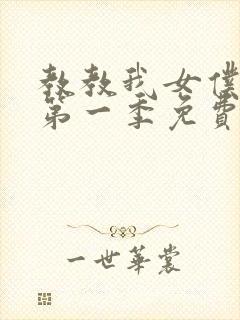 教教我女僕
第一季免費
一世華裳